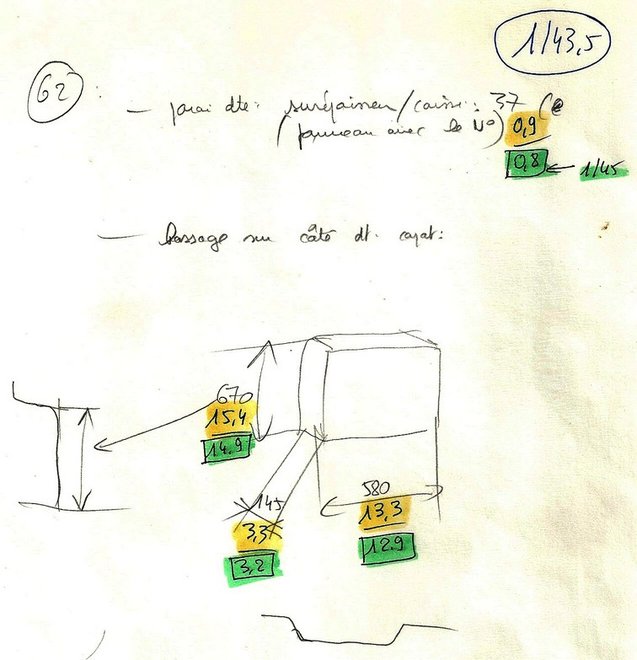 1/43,5
62
— paroi dte : surépaisseur/caisse : 37 (
(panneau avec le N°) 0,9
0,8 ← 1/45
— bossage sur côté dt. capot :
670
15,4
14.9
145
3,3
3,2
580
13,3
12.9